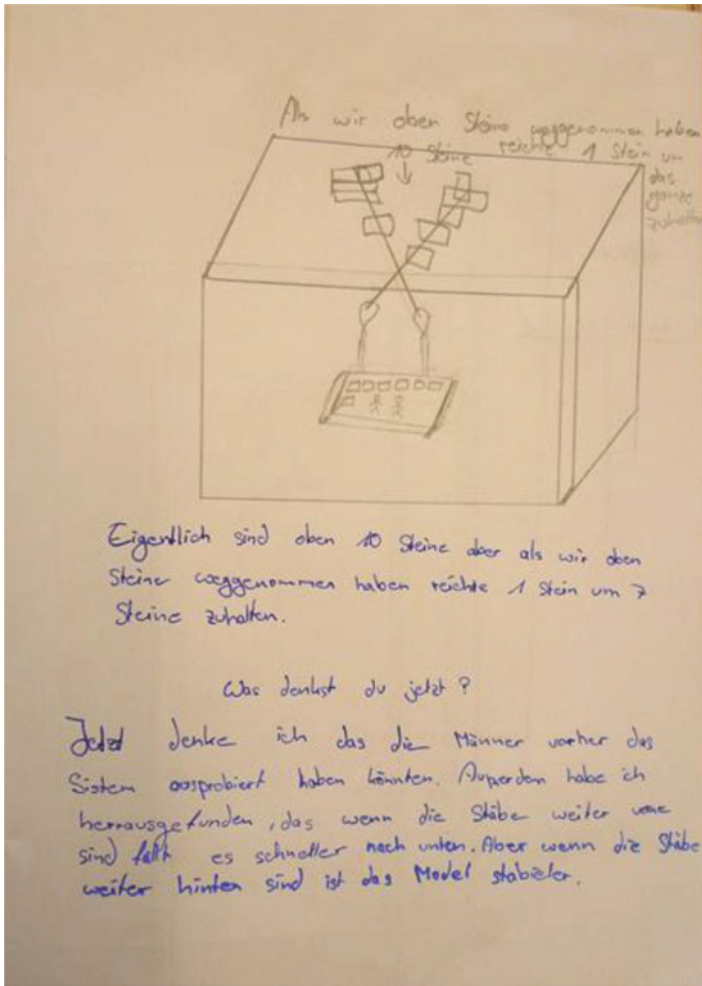 Als wir oben Steine weggenommen haben
10 Steine reichte 1 Stein um
das
ganze
zuhalten
Eigentlich sind oben 10 Steine aber als wir oben
Steine weggenommen haben reichte 1 Stein um 7
Steine zuhalten.
Was denkst du jetzt?
Jetzt denke ich das die Männer vorher das
Sistem ausprobiert haben könnten. Außerdem habe ich
herrausgefunden, das wenn die Stäbe weiter vorne
sind fällt es schneller nach unten. Aber wenn die Stäbe
weiter hinten sind ist das Model stabieler.